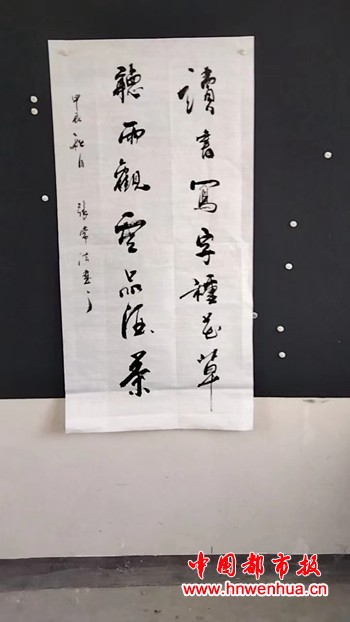 讀書寫字種花草
聽雨觀雲品酒茶
甲辰 秋月 張常法書
中国都市报
www.hnwenhua.cn